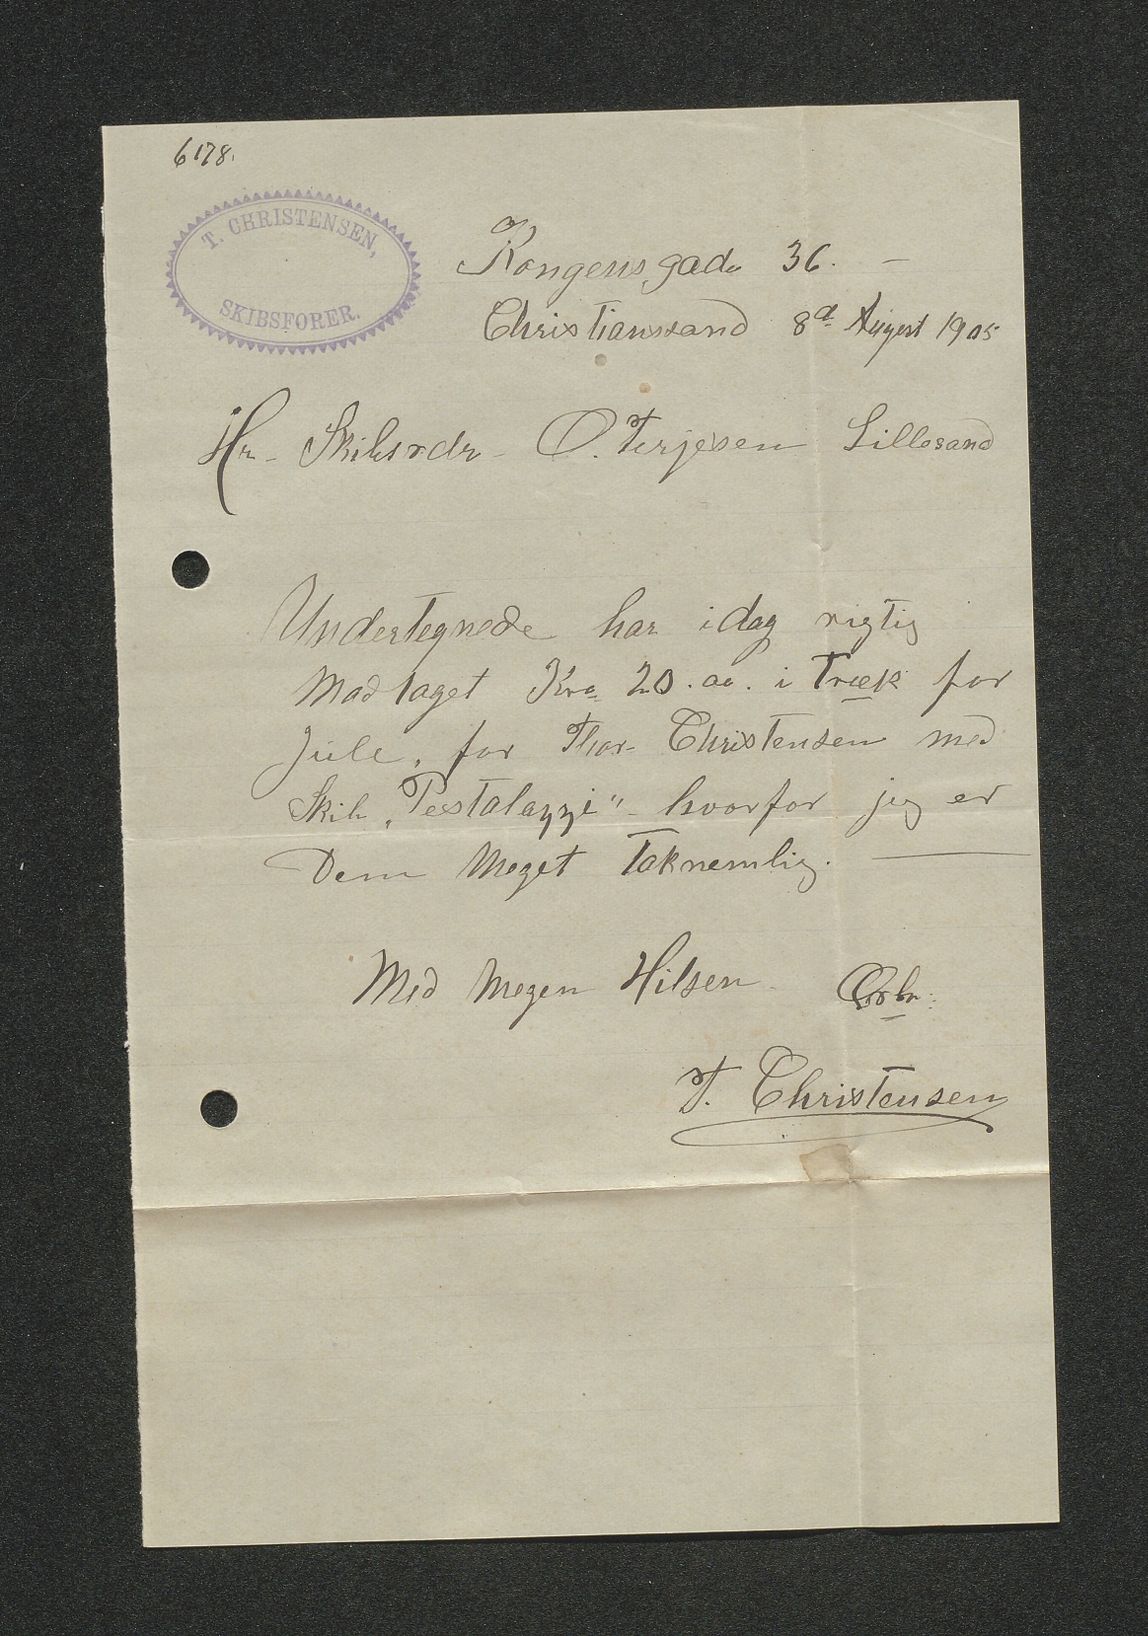 6178.
T. CHRISTENSEN,
SKIBSFØRER.
Kongensgade 36. —
Christianssand 8d August 1905
Hr. Skibsrdr. O. Terjesen Lillesand
Undertegnede har idag rigtig
Modtaget Kro 20.00. i Træk for
Jule, for Thor Christensen med
Skib „Pestalozzi" hvorfor jeg er
Dem Meget Taknemlig. —
Med Megen Hilsen Ærbr.
T. Christensen